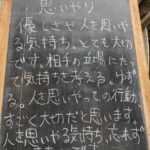 思いやり
優しさや人を思いや
る気持ち、とても大切
です。相手の立場にたっ
て気持ちを考える。ゆず
る。人を思いやっての行動
すごく大切だと思います。
人を思いやる気持ち、忘れず